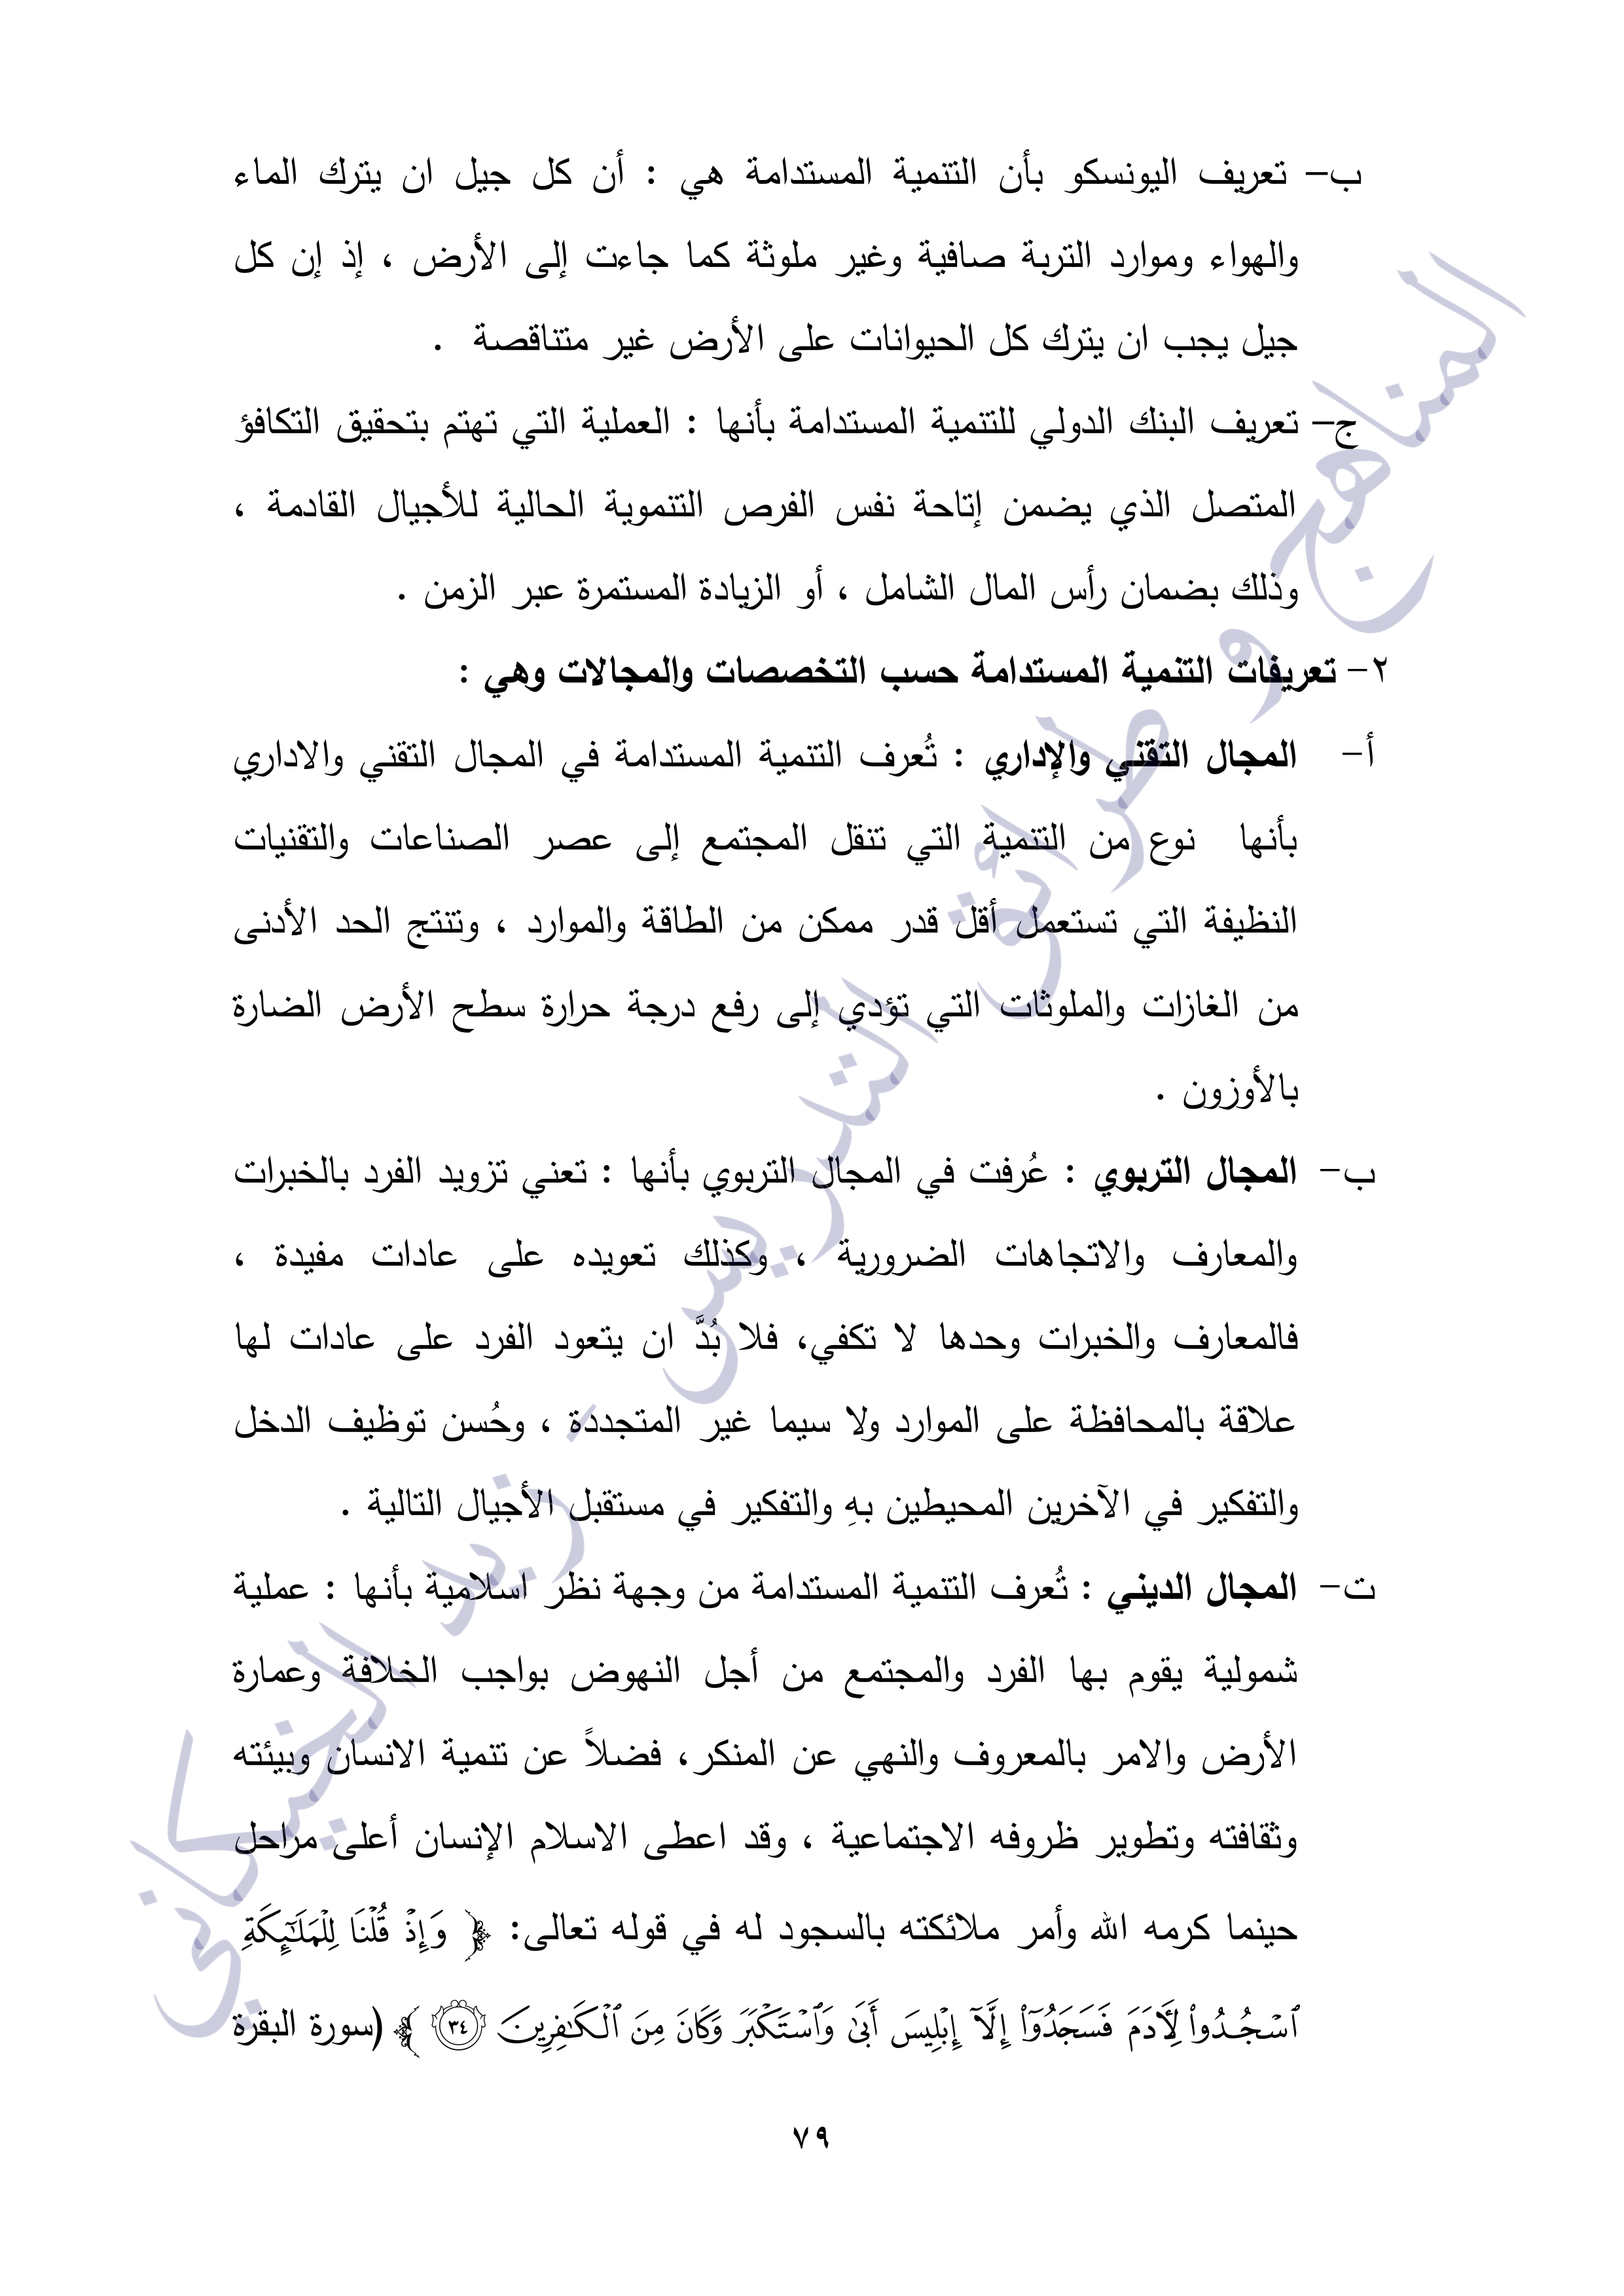 ب- تعريف اليونسكو بأن التنمية المستدامة هي : أن كل جيل ان يترك الماء
والهواء وموارد التربة صافية وغير ملوثة كما جاءت إلى الأرض ، إذ إن كل
جيل يجب ان يترك كل الحيوانات على الأرض غير متناقصة .
ج- تعريف البنك الدولي للتنمية المستدامة بأنها : العملية التي تهتم بتحقيق التكافؤ
المتصل الذي يضمن إتاحة نفس الفرص التنموية الحالية للأجيال القادمة ،
وذلك بضمان رأس المال الشامل ، أو الزيادة المستمرة عبر الزمن .
٢- تعريفات التنمية المستدامة حسب التخصصات والمجالات وهي :
أ- المجال التقني والإداري : تُعرف التنمية المستدامة في المجال التقني والاداري
بأنها نوع من التنمية التي تنقل المجتمع إلى عصر الصناعات والتقنيات
النظيفة التي تستعمل أقل قدر ممكن من الطاقة والموارد ، وتنتج الحد الأدنى
من الغازات والملوثات التي تؤدي إلى رفع درجة حرارة سطح الأرض الضارة
بالأوزون .
ب- المجال التربوي : عُرفت في المجال التربوي بأنها : تعني تزويد الفرد بالخبرات
والمعارف والاتجاهات الضرورية ، وكذلك تعويده على عادات مفيدة ،
فالمعارف والخبرات وحدها لا تكفي، فلا بُدَّ ان يتعود الفرد على عادات لها
علاقة بالمحافظة على الموارد ولا سيما غير المتجددة ، وحُسن توظيف الدخل
والتفكير في الآخرين المحيطين بهِ والتفكير في مستقبل الأجيال التالية .
ت- المجال الديني : تُعرف التنمية المستدامة من وجهة نظر اسلامية بأنها : عملية
شمولية يقوم بها الفرد والمجتمع من أجل النهوض بواجب الخلافة وعمارة
الأرض والامر بالمعروف والنهي عن المنكر، فضلاً عن تنمية الانسان وبيئته
وثقافته وتطوير ظروفه الاجتماعية ، وقد اعطى الاسلام الإنسان أعلى مراحل
حينما كرمه الله وأمر ملائكته بالسجود له في قوله تعالى: ﴿ وَإِذۡ قُلۡنَا لِلۡمَلَٰٓئِكَةِ
ٱسۡجُدُواْ لِأٓدَمَ فَسَجَدُوٓاْ إِلَّآ إِبۡلِيسَ أَبَىٰ وَٱسۡتَكۡبَرَ وَكَانَ مِنَ ٱلۡكَٰفِرِينَ ٣٤ ﴾ (سورة البقرة
٧٩
المناهج و طرائق التدريس - زيد الخيكاني